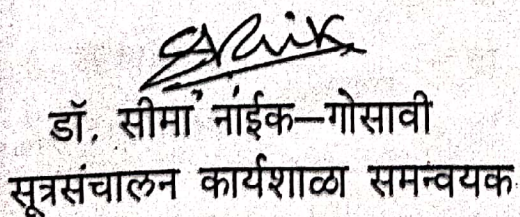 डॉ. सीमा नाईक–गोसावी
सूत्रसंचालन कार्यशाळा समन्वयक